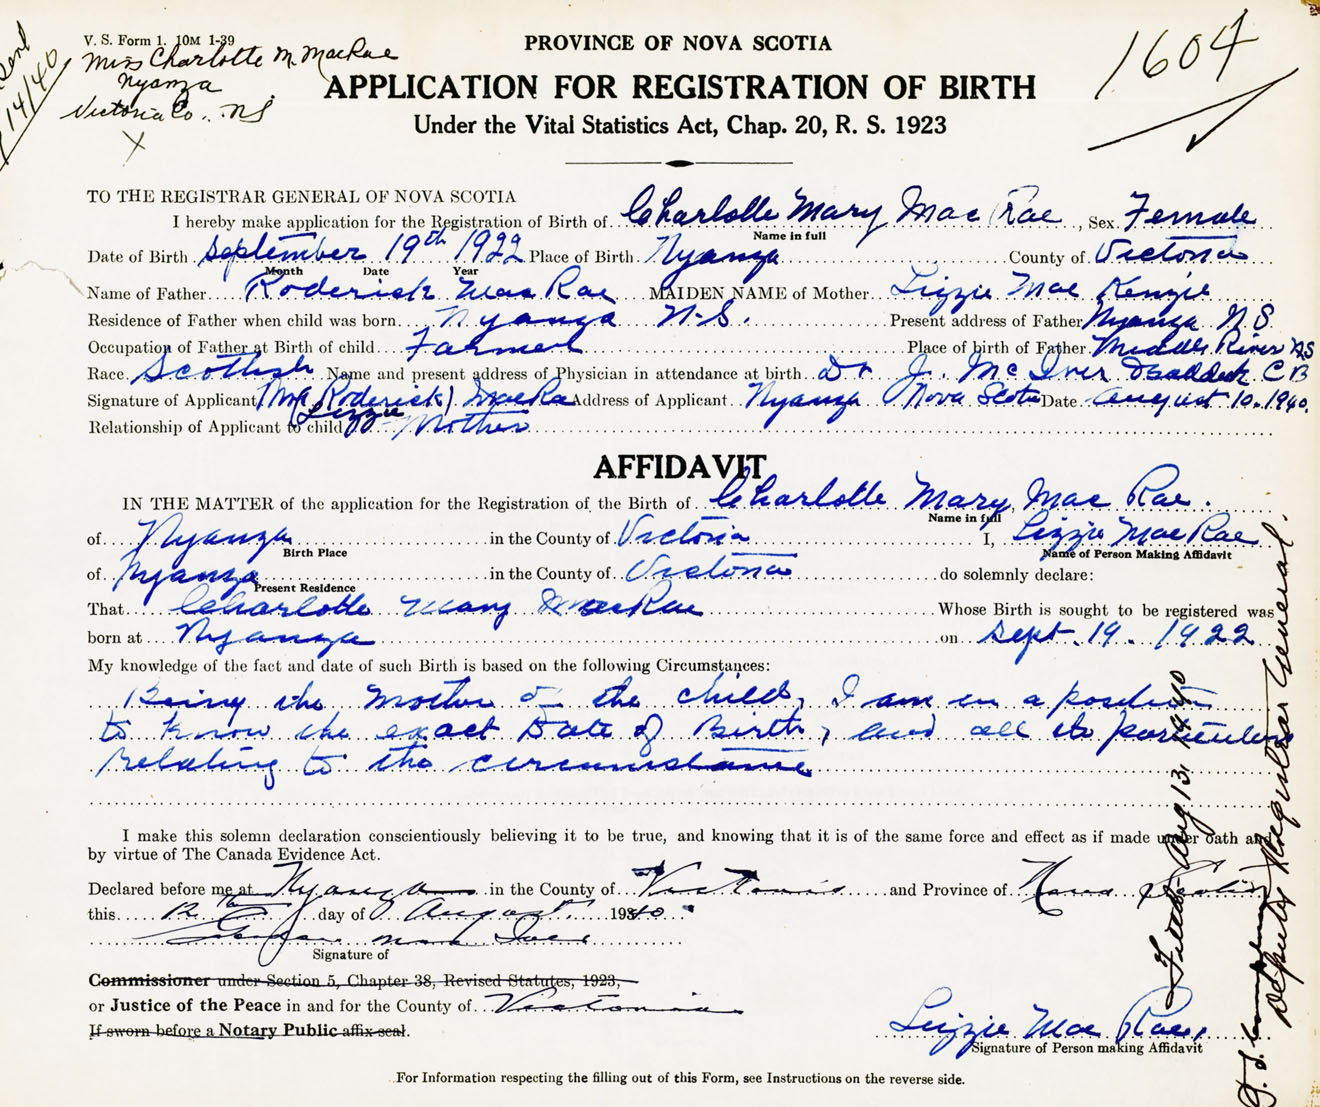 V. S. Form 1. 10M 1-39
Miss Charlotte M. MacRae
Nyanza
Victoria Co., NS
X
14/40
1604
PROVINCE OF NOVA SCOTIA
APPLICATION FOR REGISTRATION OF BIRTH
Under the Vital Statistics Act, Chap. 20, R. S. 1923
TO THE REGISTRAR GENERAL OF NOVA SCOTIA
I hereby make application for the Registration of Birth of Charlotte Mary MacRae, Sex Female
Name in full
Date of Birth September 19th 1922 Place of Birth Nyanza County of Victoria
Month Date Year
Name of Father Roderick MacRae MAIDEN NAME of Mother Lizzie MacKenzie
Residence of Father when child was born Nyanza N.S. Present address of Father Nyanza N.S.
Occupation of Father at Birth of child Farmer Place of birth of Father Middle River NS
Race Scottish Name and present address of Physician in attendance at birth Dr J. McIver Baddeck CB
Signature of Applicant Mrs (Roderick) MacRae Address of Applicant Nyanza Nova Scotia Date August 10. 1940.
Lizzie
Relationship of Applicant to child Mother
AFFIDAVIT
IN THE MATTER of the application for the Registration of the Birth of Charlotte Mary MacRae.
Name in full
of Nyanza in the County of Victoria I, Lizzie MacRae
Birth Place Name of Person Making Affidavit
of Nyanza in the County of Victoria do solemnly declare:
Present Residence
That Charlotte Mary MacRae Whose Birth is sought to be registered was
born at Nyanza on Sept. 19. 1922
My knowledge of the fact and date of such Birth is based on the following Circumstances:
Being the Mother of the child, I am in a position
to know the exact Date of Birth, and all its particulars
relating to the circumstance
I make this solemn declaration conscientiously believing it to be true, and knowing that it is of the same force and effect as if made under oath and
by virtue of The Canada Evidence Act.
Declared before me at Nyanza in the County of Victoria and Province of Nova Scotia
this 12th day of August 1940
Signature of
Commissioner under Section 5, Chapter 38, Revised Statutes, 1923,
or Justice of the Peace in and for the County of Victoria
If sworn before a Notary Public affix seal.
Lizzie MacRae,
Signature of Person making Affidavit
For Information respecting the filling out of this Form, see Instructions on the reverse side.
Filed Aug 13, 1940
Deputy Registrar General.